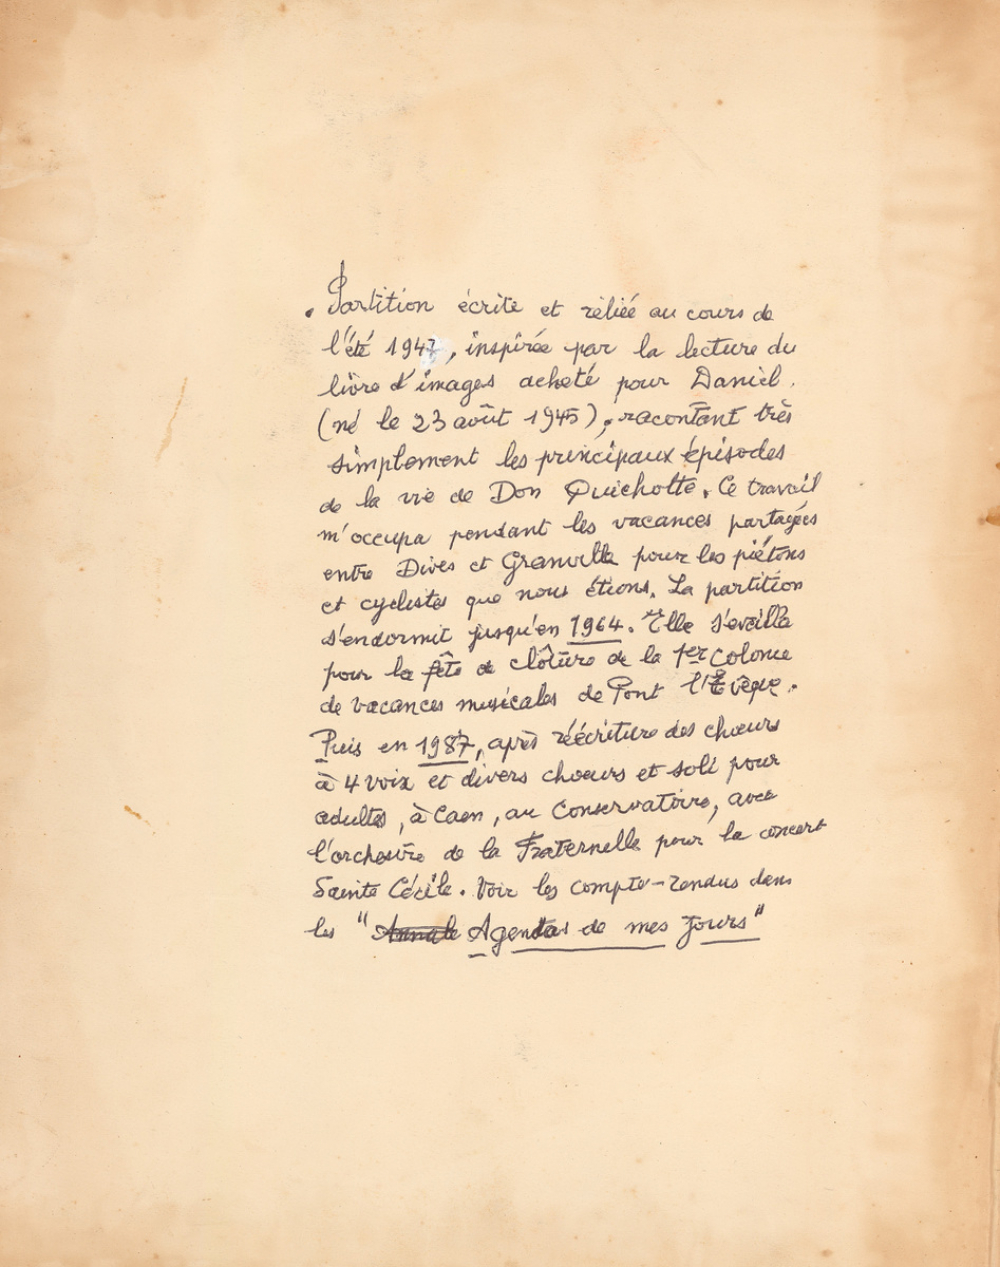 . Partition écrite et reliée au cours de
l'été 1947, inspirée par la lecture du
livre d'images acheté pour Daniel.
(né le 23 août 1945), racontant très
simplement les principaux épisodes
de la vie de Don Quichotte. Ce travail
m'occupa pendant les vacances partagées
entre Dives et Granville pour les piétons
et cyclistes que nous étions. La partition
s'endormit jusqu'en 1964. Elle s'éveilla
pour la fête de clôture de la 1er colonie
de vacances musicales de Pont l'Évêque.
Puis en 1987, après réécriture des chœurs
à 4 voix et divers chœurs et soli pour
adultes, à Caen, au Conservatoire, avec
l'orchestre de la Fraternelle pour le concert
Sainte Cécile. Voir les compte-rendus dans
les "Annale Agendas de mes jours"